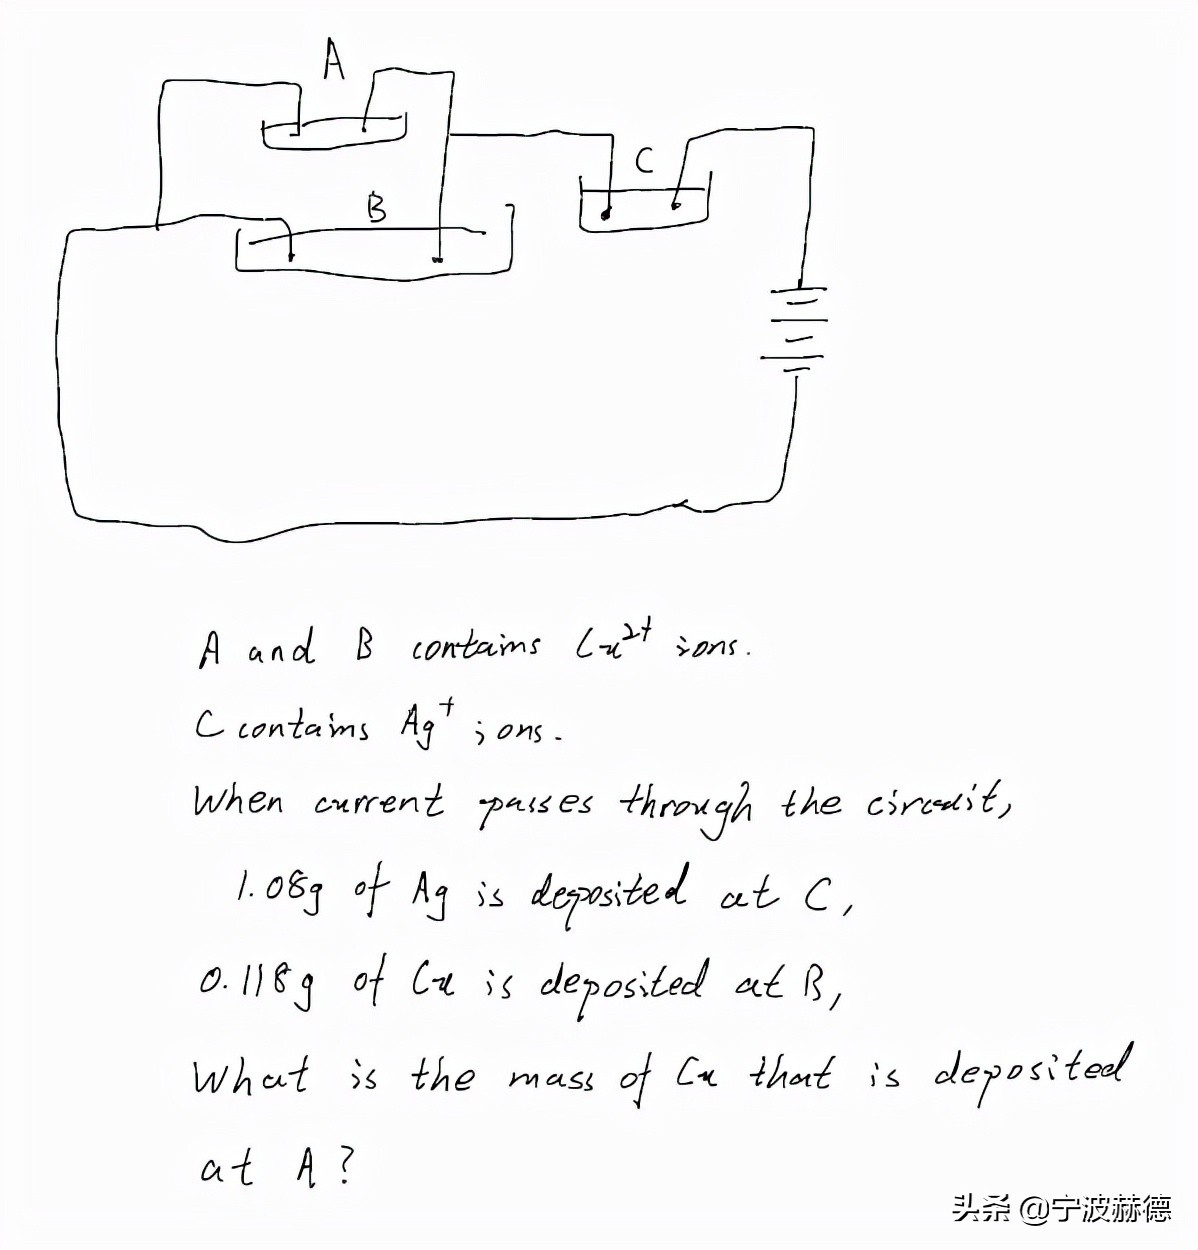 A
C
B
A and B contains Cu²⁺ ions.
C contains Ag⁺ ions.
When current passes through the circuit,
1.08g of Ag is deposited at C,
0.118g of Cu is deposited at B,
What is the mass of Cu that is deposited
at A?
头条 @宁波赫德